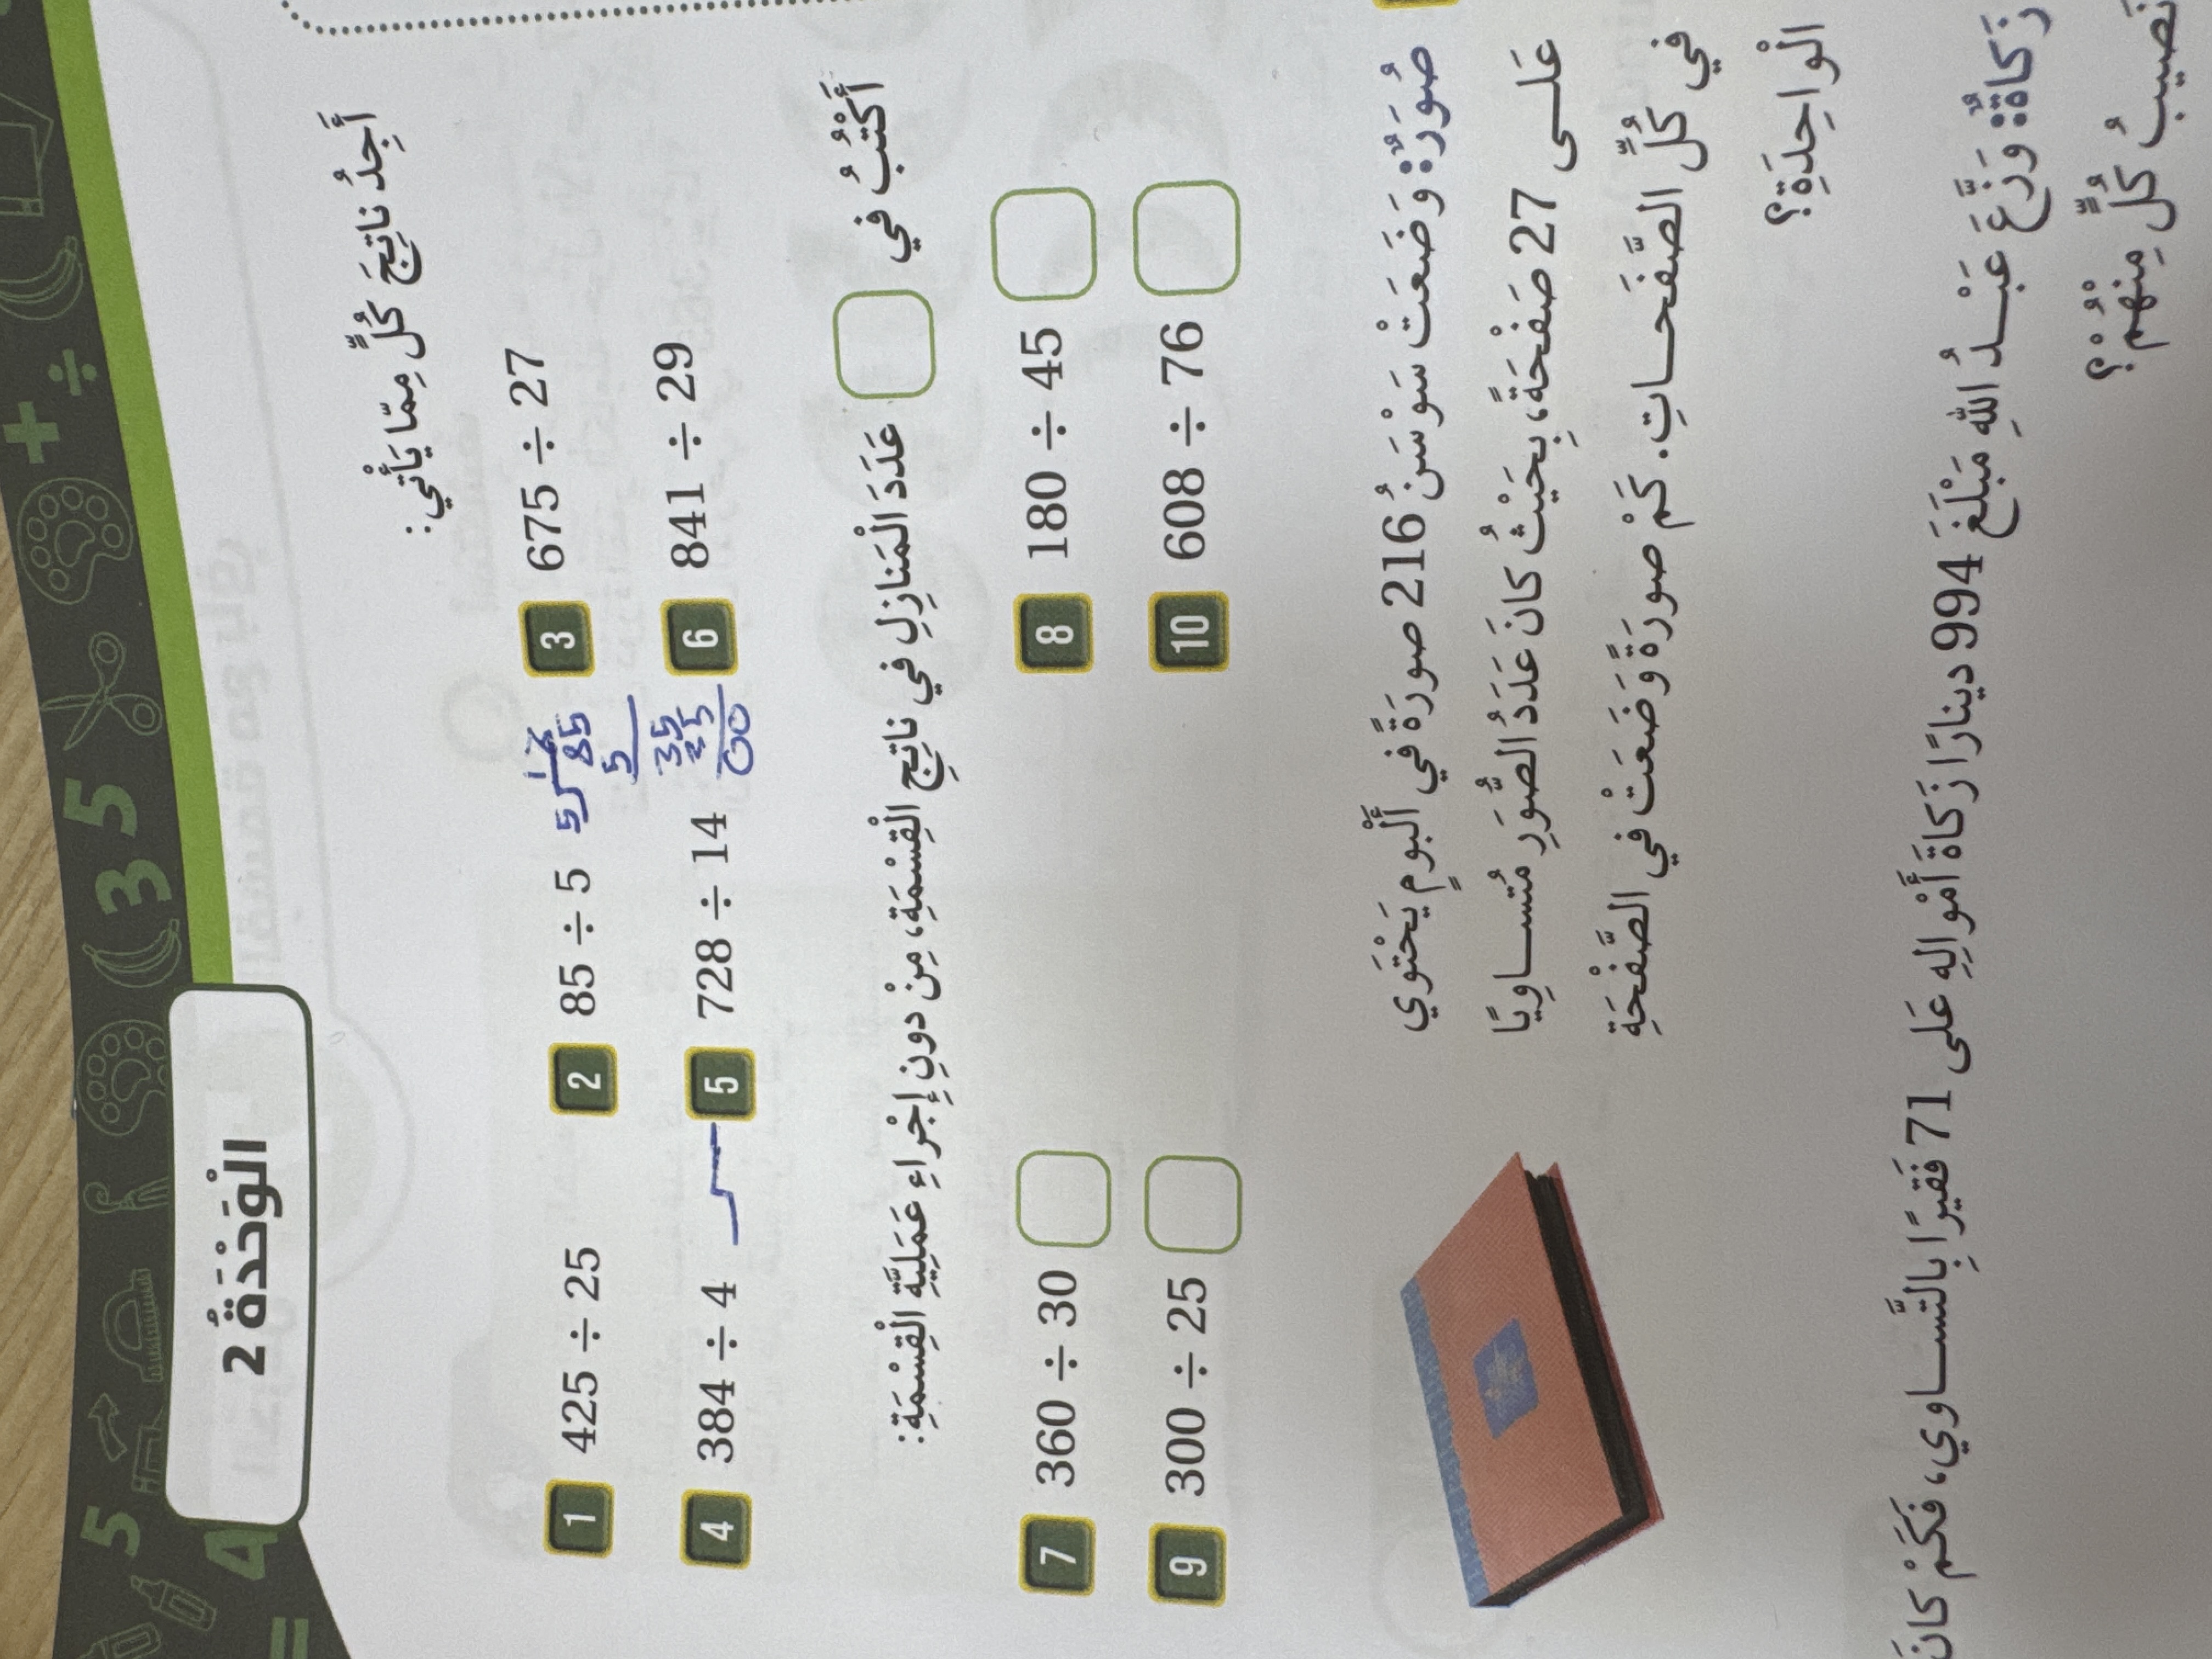 الْوَحْدَةُ 2
أَجِدُ ناتِجَ كُلٍّ مِمّا يَأْتي:
1 425 ÷ 25 2 85 ÷ 5 3 675 ÷ 27
17
5 85
5
35
35
00
4 384 ÷ 4 5 728 ÷ 14 6 841 ÷ 29
أَكْتُبُ في عَدَدَ الْمَنازِلِ في ناتِجِ الْقِسْمَةِ، مِنْ دونِ إِجْراءِ عَمَلِيَّةِ الْقِسْمَةِ:
7 360 ÷ 30 8 180 ÷ 45
9 300 ÷ 25 10 608 ÷ 76
صُوَرٌ: وَضَعَتْ سَوْسَنُ 216 صورَةً في أَلْبومٍ يَحْتَوي
عَلى 27 صَفْحَةً، بِحَيْثُ كانَ عَدَدُ الصُّوَرِ مُتَساوِيًا
في كُلِّ الصَّفَحاتِ. كَمْ صورَةً وَضَعَتْ في الصَّفْحَةِ
الْواحِدَةِ؟
زَكاةٌ: وَزَّعَ عَبْدُ اللهِ مَبْلَغَ 994 دينارًا زَكاةَ أَمْوالِهِ عَلى 71 فَقيرًا بِالتَّساوي، فَكَمْ كانَ
نَصيبُ كُلٍّ مِنْهُمْ؟